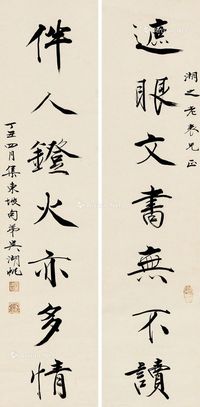 湖之老表兄正
遮眼文書無不讀
伴人鐙火亦多情
丁丑四月集東坡句弟吳湖帆